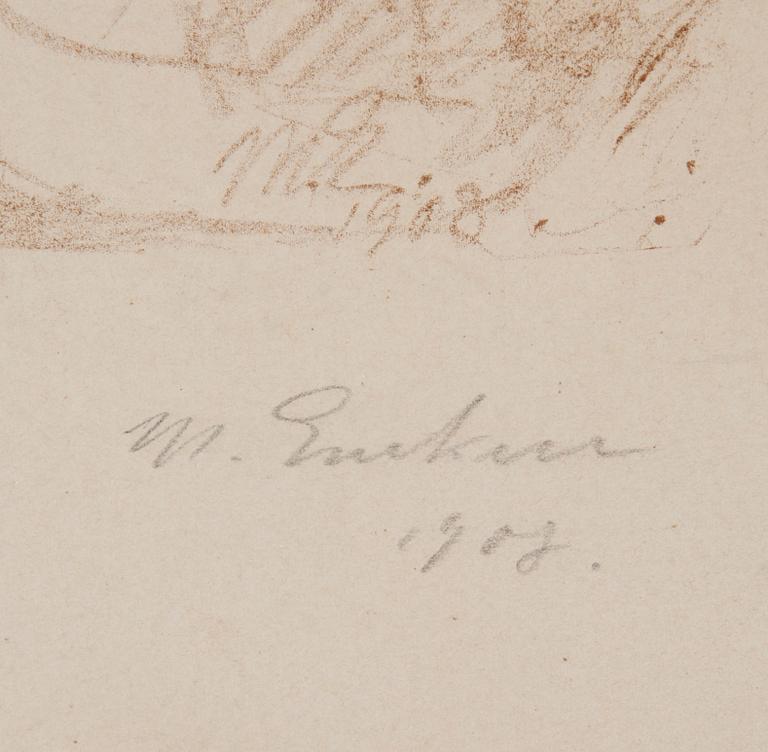 M.E.
1908
M. Enckell
1908.